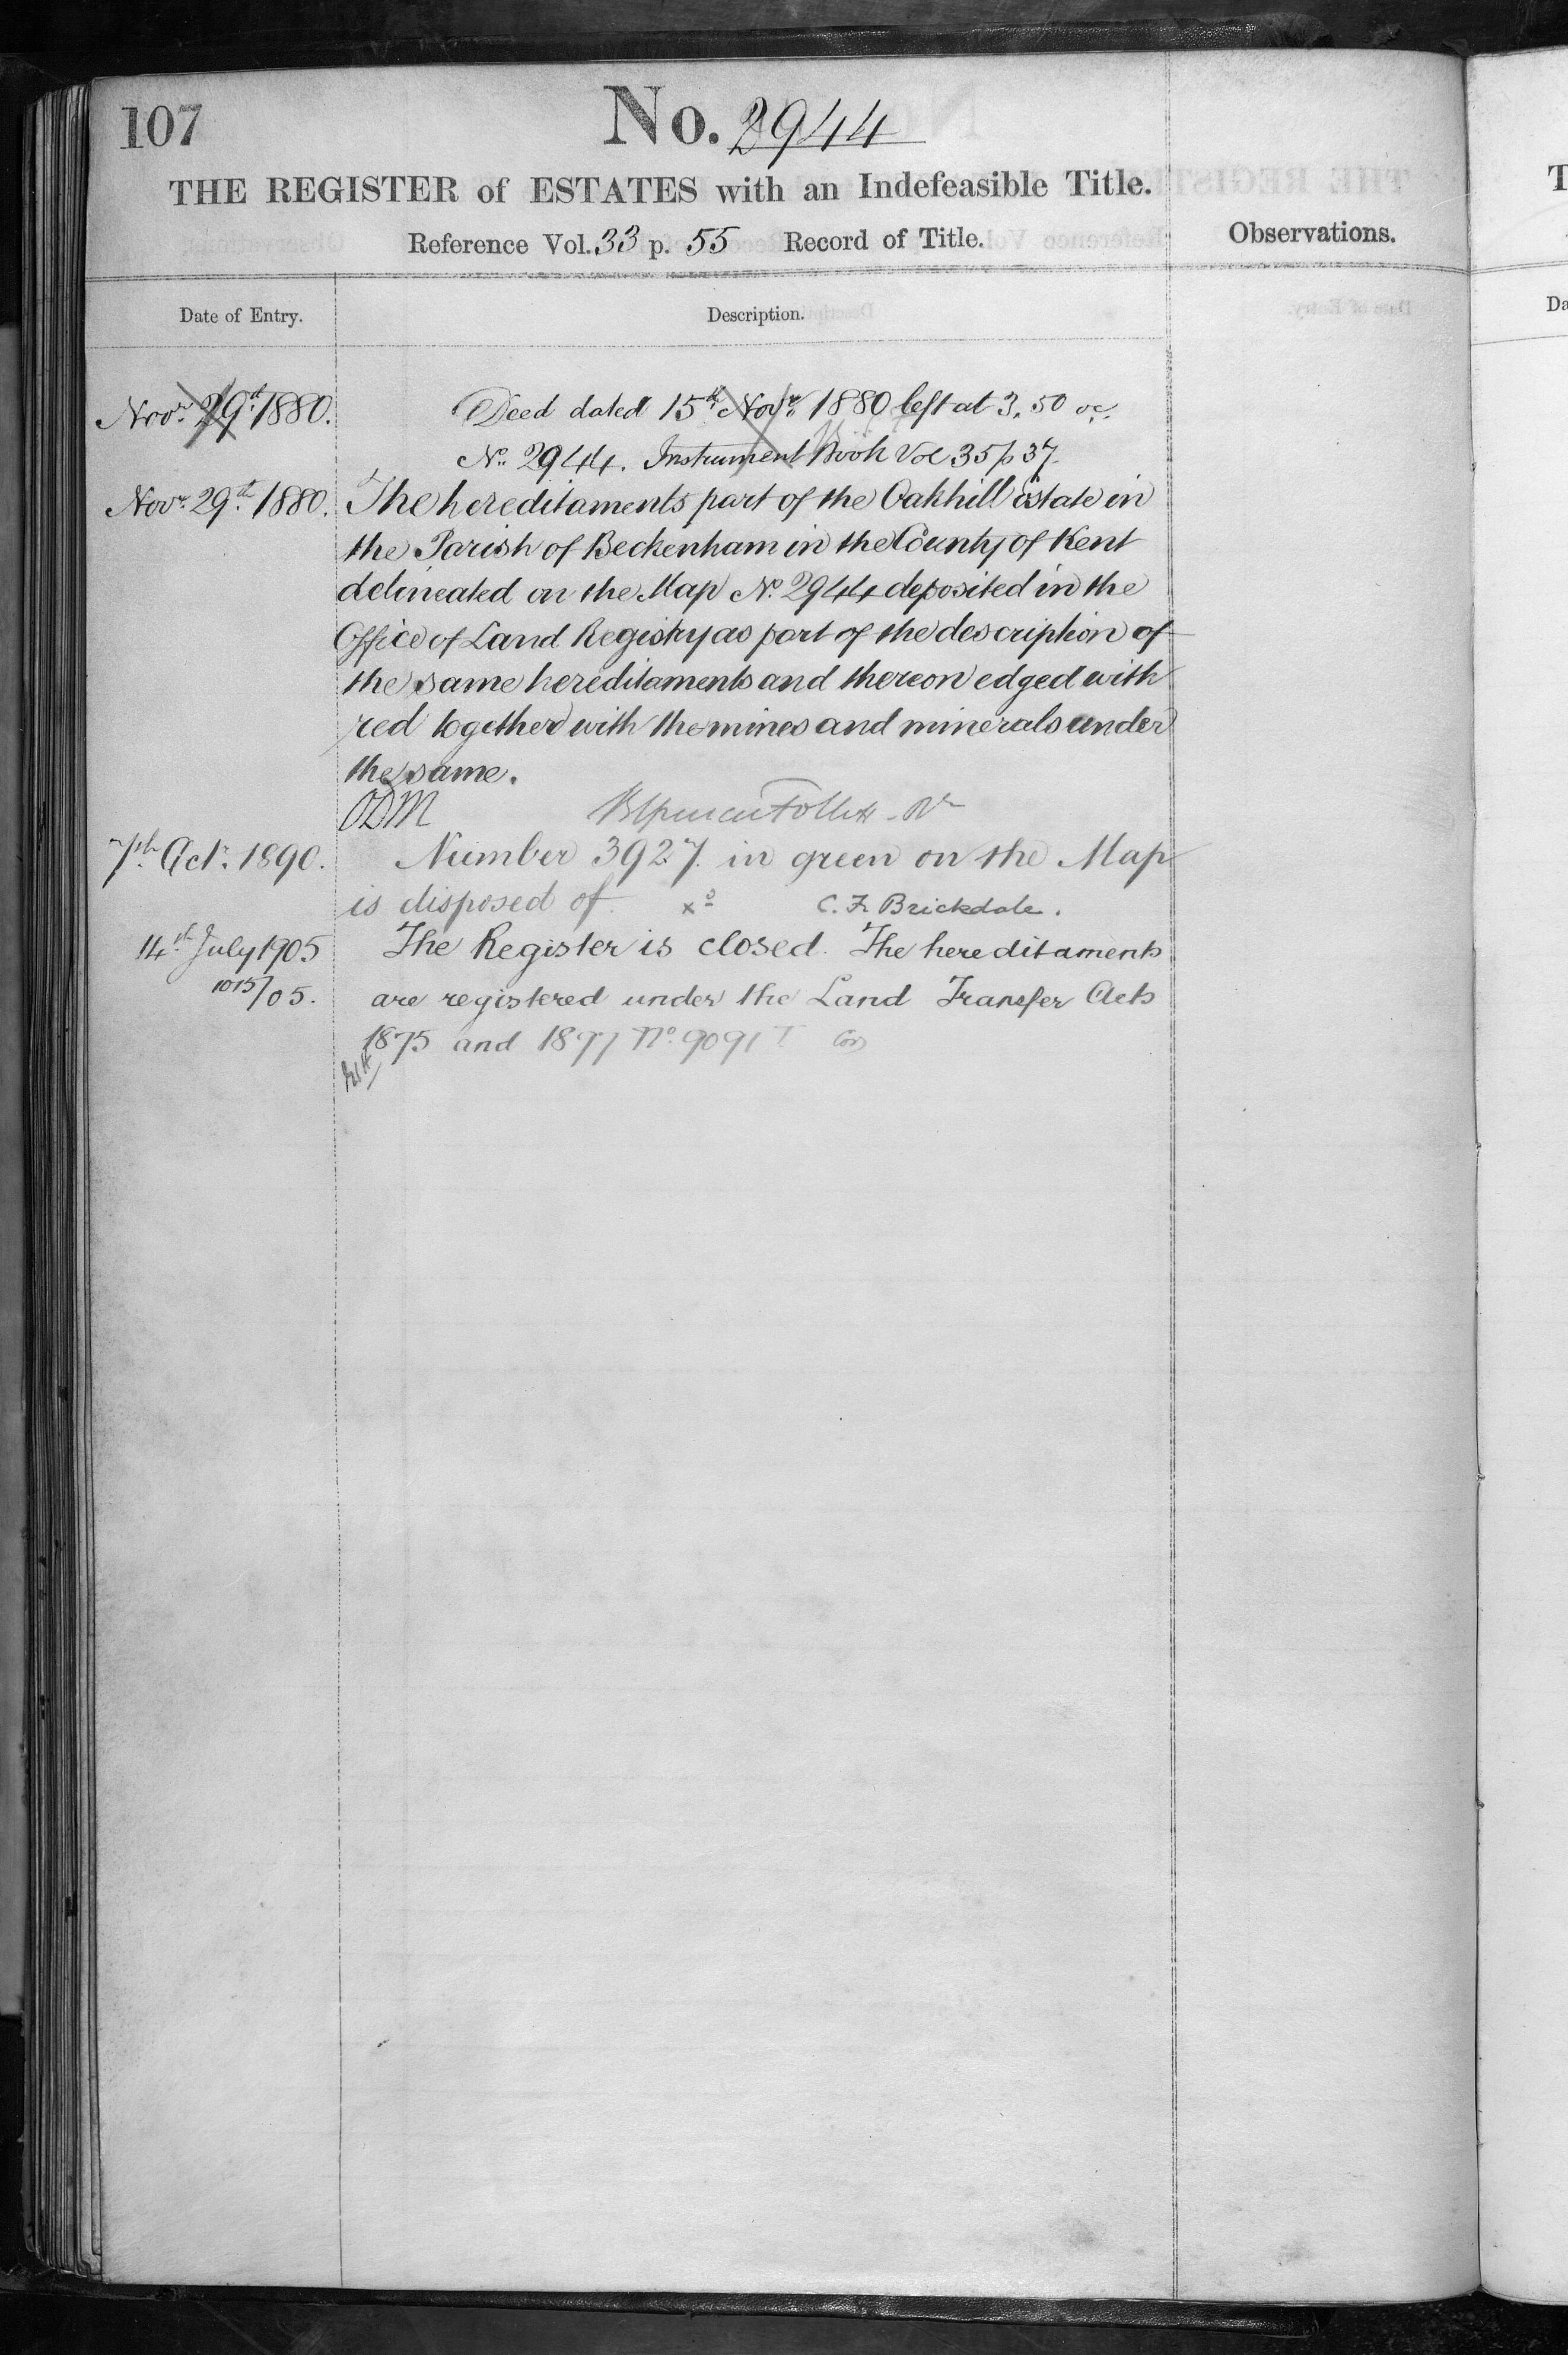 107
No. 2944
THE REGISTER of ESTATES with an Indefeasible Title.
Reference Vol. 33 p. 55 Record of Title.
Observations.
Date of Entry.
Description.
Novr. 29th 1880.
Deed dated 15th Novr. 1880 left at 3.50 oc.
No. 2944. Instrument Book Vol 35 p 37.
Novr. 29th 1880.
The hereditaments part of the Oakhill Estate in
the Parish of Beckenham in the County of Kent
delineated on the Map No. 2944 deposited in the
Office of Land Registry as part of the description of
the same hereditaments and thereon edged with
red together with the mines and minerals under
the same.
ODM
7th Octr. 1890.
Number 3927 in green on the Map
is disposed of. xd C. F. Brickdale.
14th July 1905
1015/05.
The Register is closed. The hereditaments
are registered under the Land Transfer Acts
1875 and 1897 No. 9091